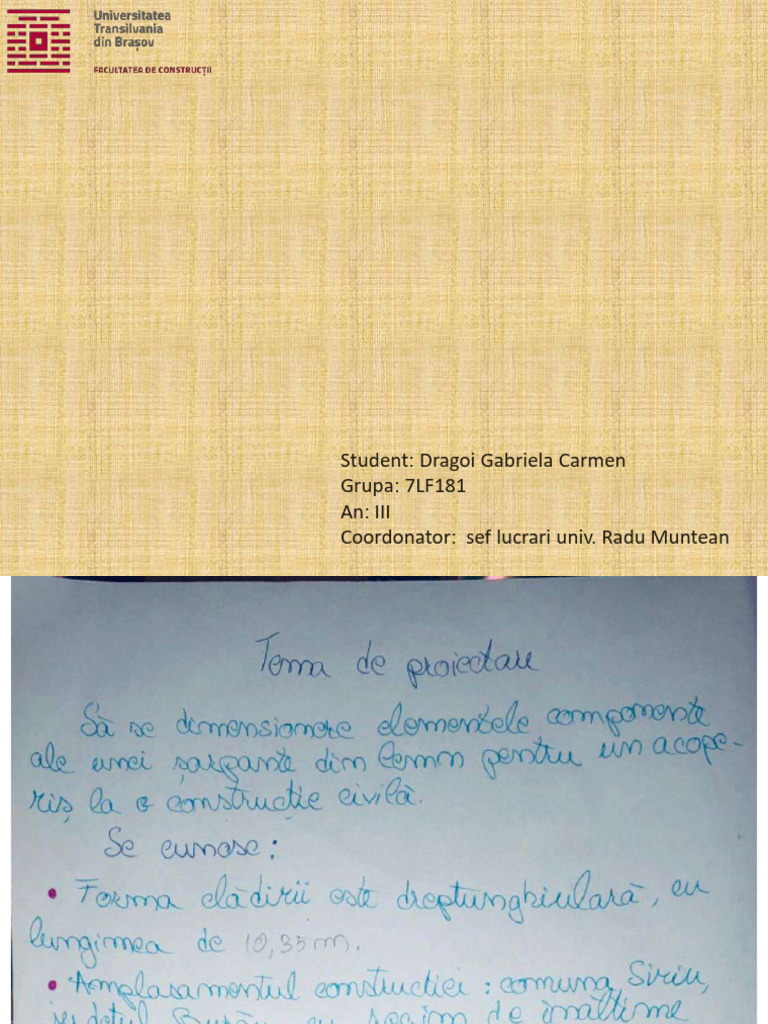 Universitatea
Transilvania
din Brașov
FACULTATEA DE CONSTRUCȚII
Student: Dragoi Gabriela Carmen
Grupa: 7LF181
An: III
Coordonator: sef lucrari univ. Radu Muntean
Tema de proiectare
Să se dimensioneze elementele componente
ale unei șarpante din lemn pentru un acope-
riș la o construcție civilă.
Se cunosc:
• Forma clădirii este dreptunghiulară, cu
lungimea de 10,35m.
• Amplasamentul constructiei: comuna Siriu,
județul Buzău, cu regim de înălțime